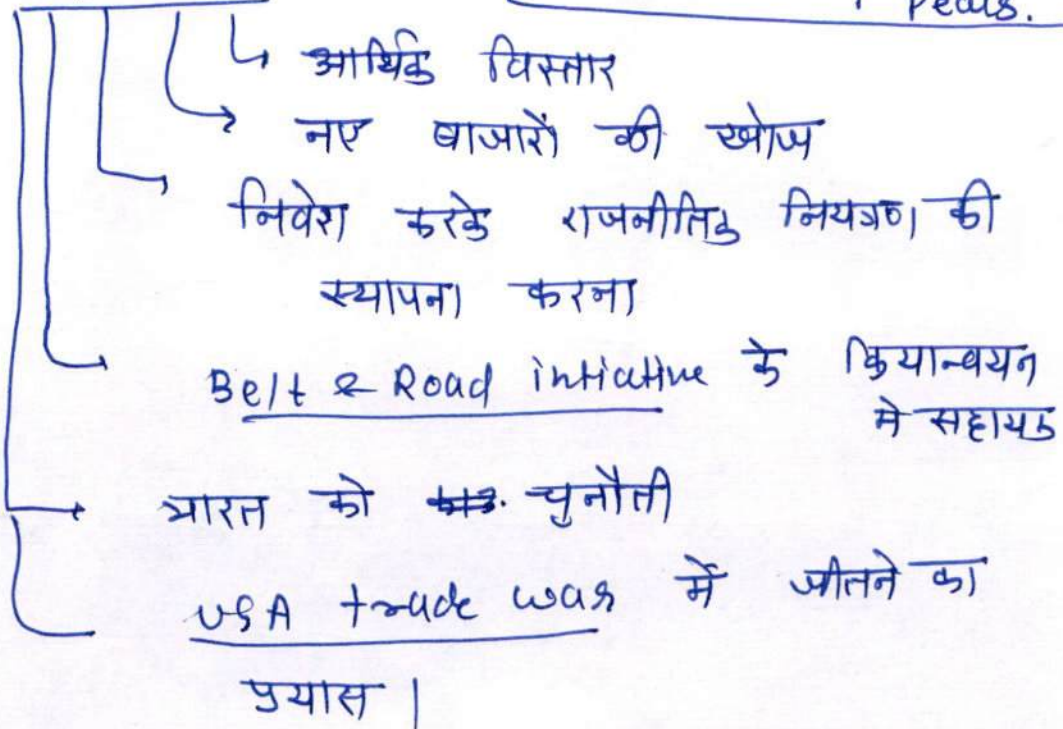 Pearls.
आर्थिक विस्तार
नए बाजारों की खोज
निवेश करके राजनीतिक नियत्रण की
स्थापना करना
Belt & Road intiative के क्रियान्वयन
मे सहायक
भारत को चुनौती
USA trade war में जीतने का
प्रयास |